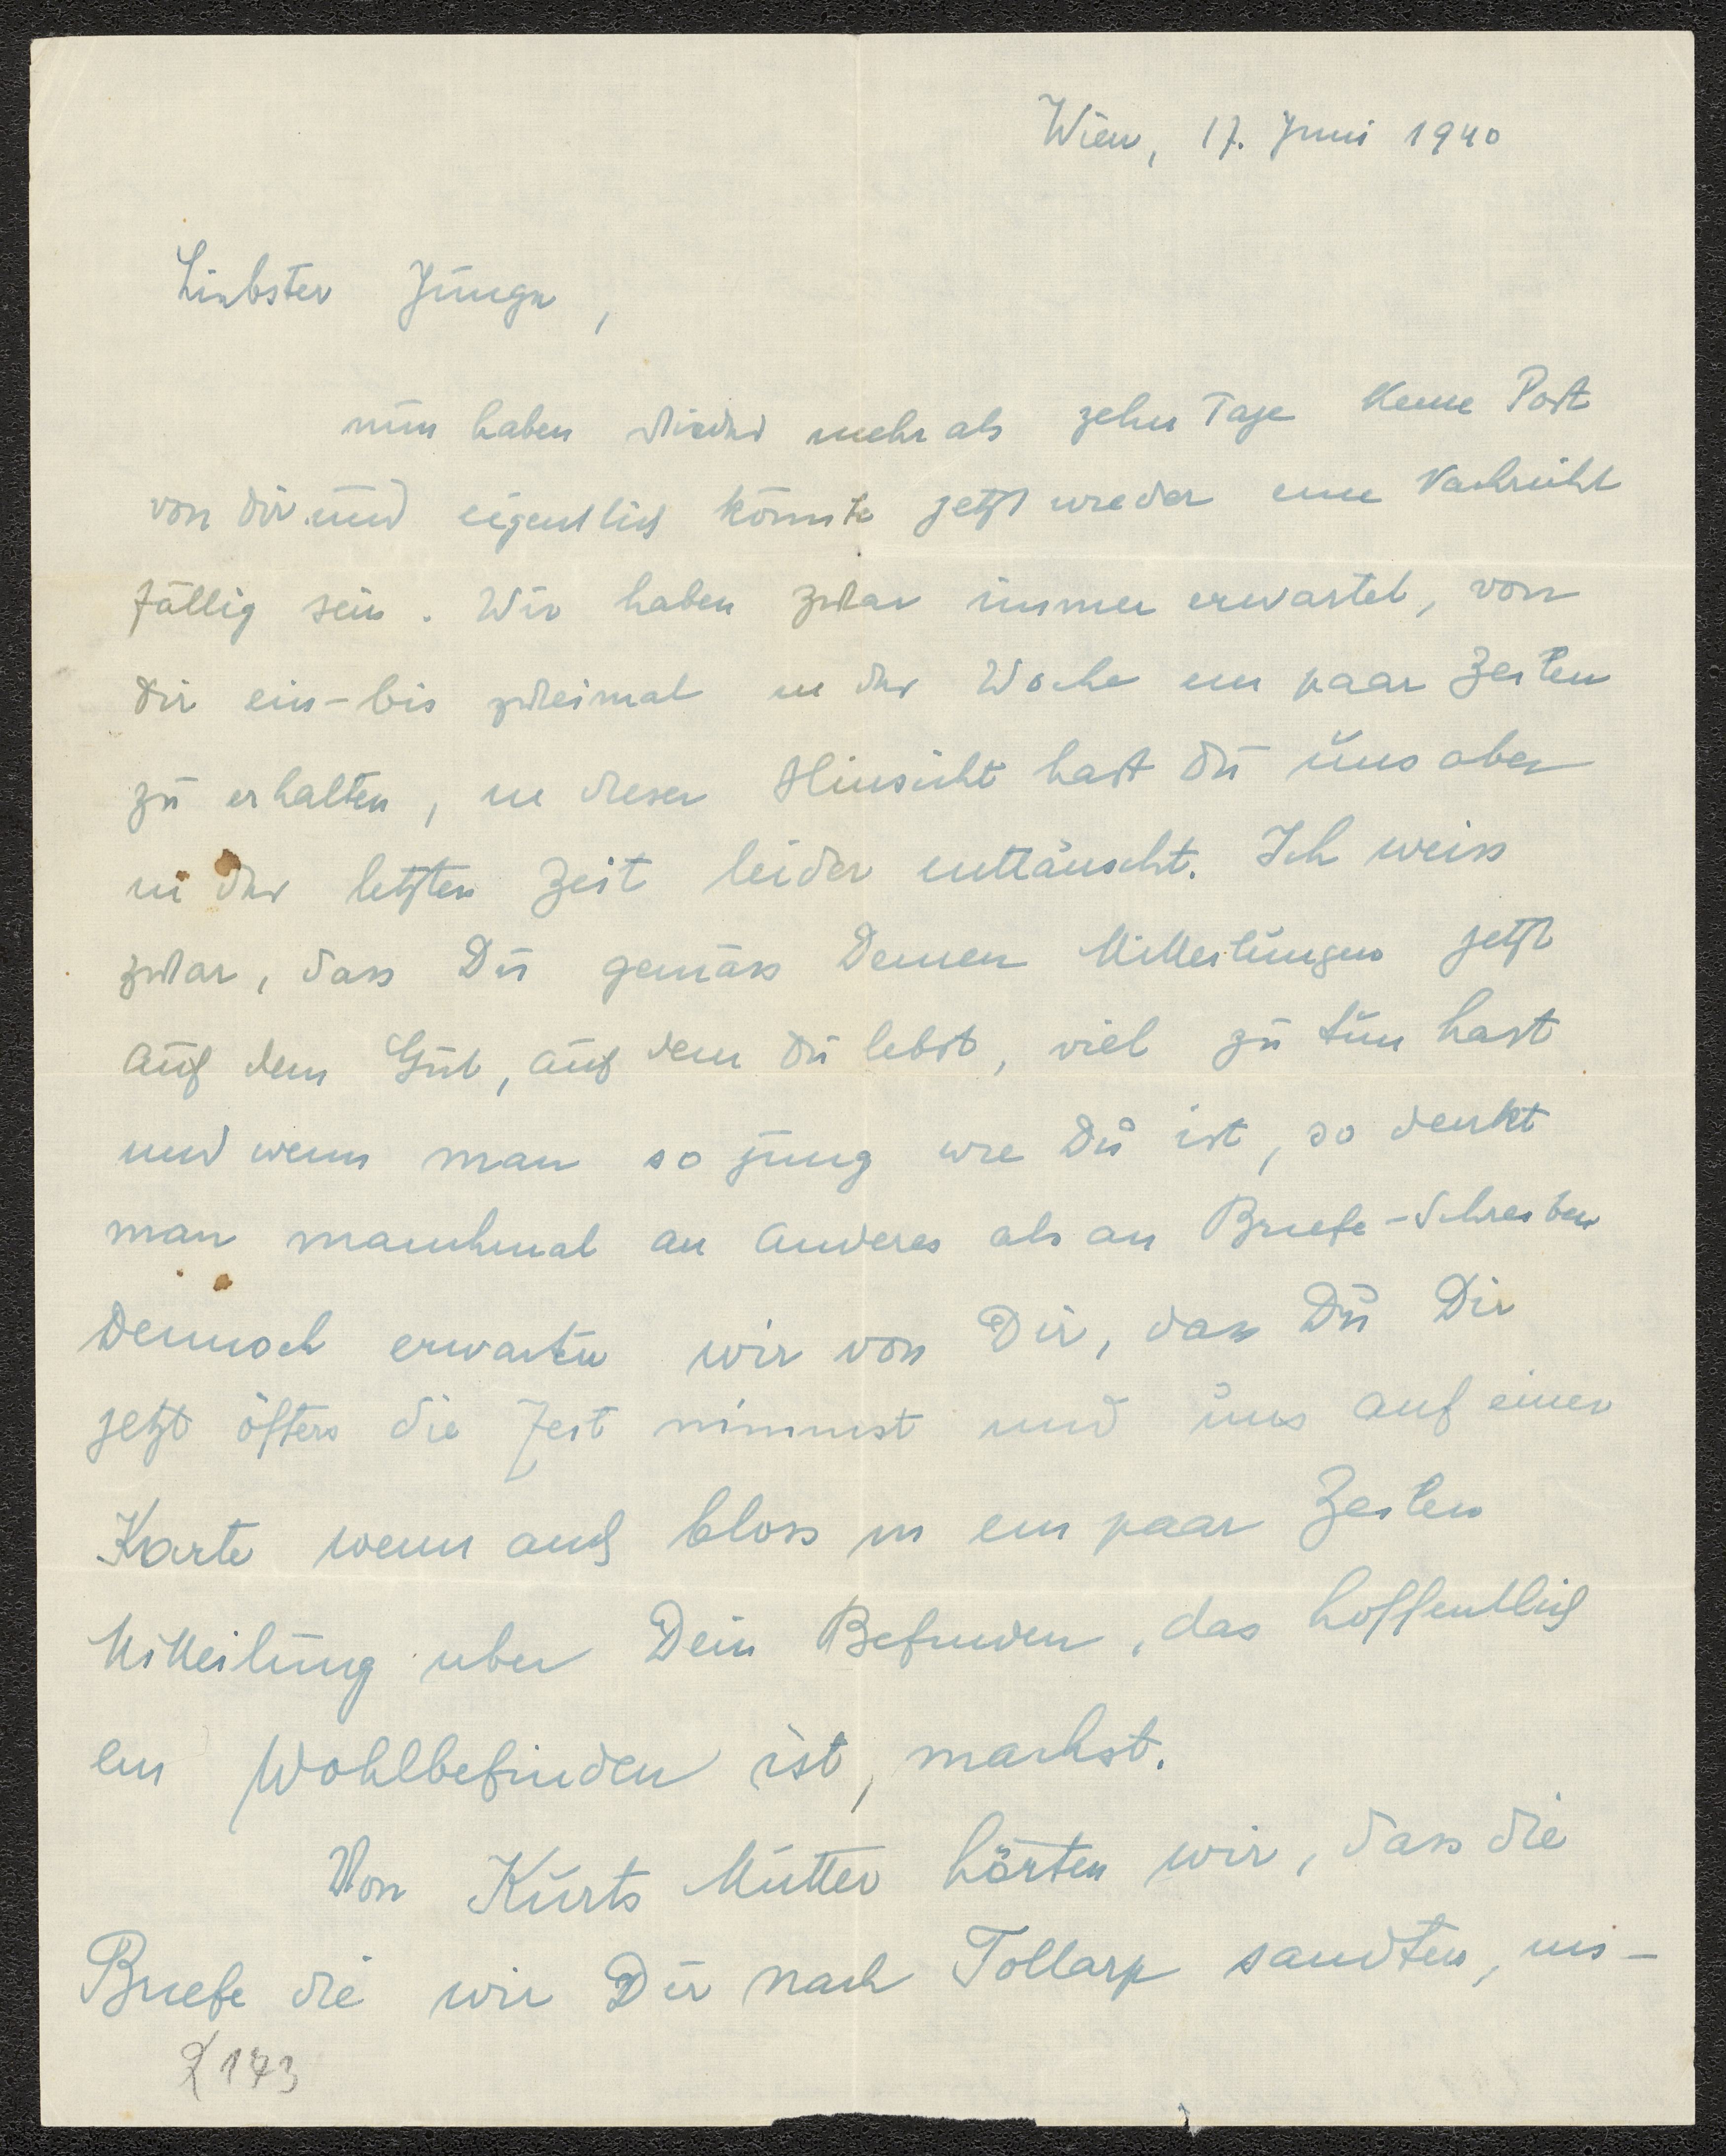 Wien, 17. Juni 1940
Liebster Junge,
nun haben wieder mehr als zehn Tage keine Post
von Dir und eigentlich könnte jetzt wieder eine Nachricht
fällig sein. Wir haben zwar immer erwartet, von
Dir ein-bis zweimal in der Woche ein paar Zeilen
zu erhalten, in dieser Hinsicht hast Du uns aber
in der letzten Zeit leider enttäuscht. Ich weiss
zwar, dass Du gemäss Deinen Mitteilungen jetzt
auf dem Gut, auf dem Du lebst, viel zu tun hast
und wenn man so jung wie Du ist, so denkt
man manchmal an Anderes als an Briefe-Schreiben
Dennoch erwarten wir von Dir, dass Du Dir
jetzt öfters die Zeit nimmst und uns auf einer
Karte wenn auch bloss in ein paar Zeilen
Mitteilung uber Dein Befinden, das hoffentlich
ein Wohlbefinden ist, machst.
Von Kurts Mutter hörten wir, dass die
Briefe die wir Dir nach Tollarp sandten, ins-
173